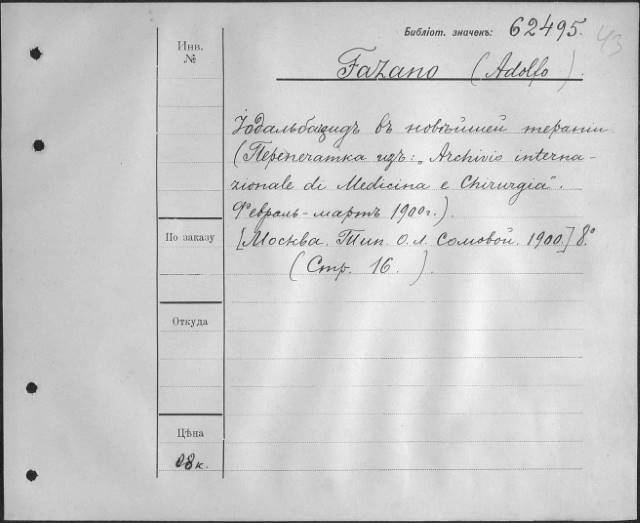 Библіот. значекъ: 62495.
43
Инв.
№
Fazano (Adolfo).
Іодальбацидъ въ новѣйшей терапіи
(Перепечатка изъ: „Archivio interna-
zionale di Medicina e Chirurgia".
Февраль-мартъ 1900г.)
По заказу
[Москва. Тип. О. Л. Сомовой. 1900.] 8°
(Стр. 16.).
Откуда
Цѣна
08к.